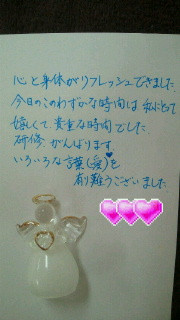 心と身体がリフレッシュできました
今日のこのわずかな時間は 私にとって
嬉しくて 貴重な時間でした
研修 がんばります
いろいろな言葉(愛)を
有り難うございました